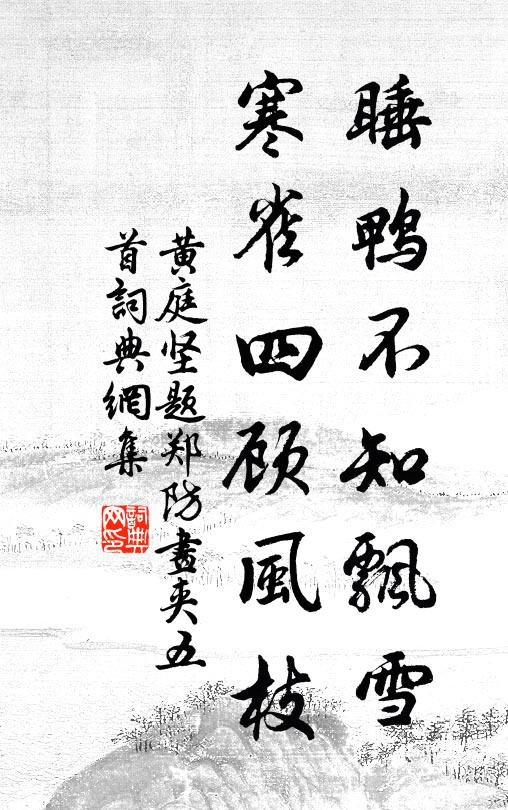 睡鸭不知飘雪
寒雀四顾風枝
黄庭坚题郑防畫夹五
首詞典網集
詞典网印